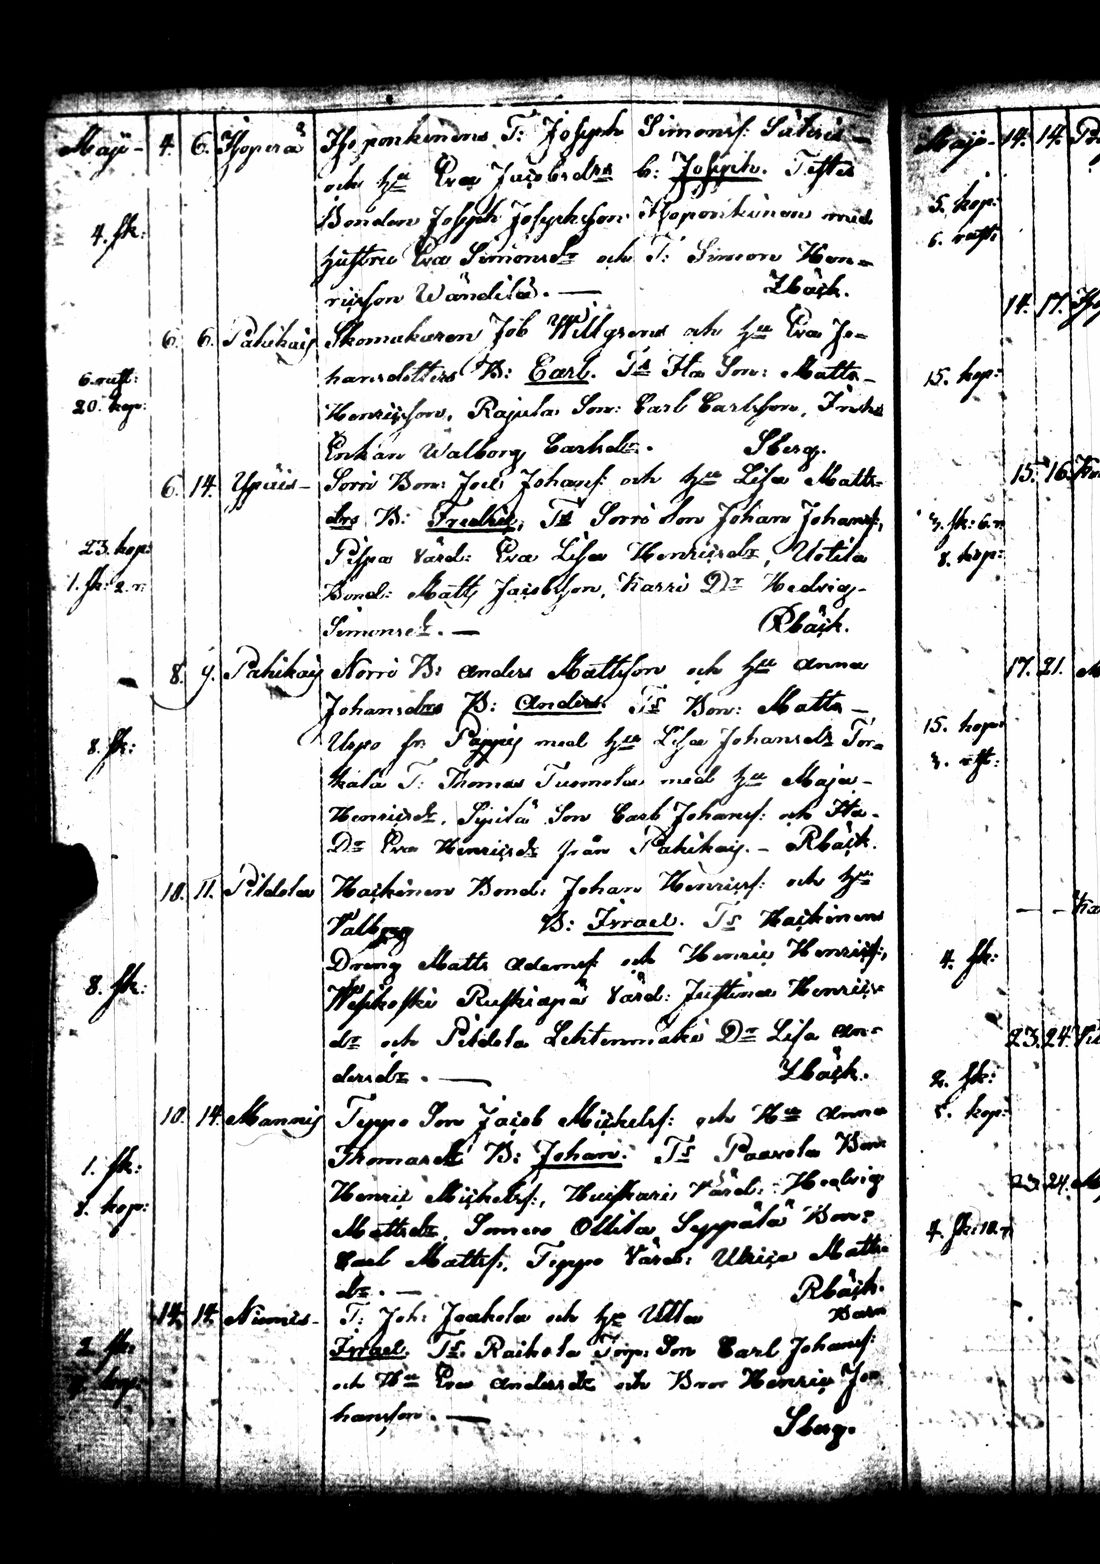 Maji - 4. 6. Hoperå Hoponkinens T: Joseph Simonss: Süteris -
och hu Eva Jacobsdrs b: Joseph. Testes
Bonden Joseph Josephsson Hoponkinen med
4. sk: hustru Eva Simonsdr och T: Simon Hen=
ricsson Wändilä. — Zbäck.
6. 6. Pahikais Skomakaren Job Willgrens och hu Eva Jo=
hansdotters B: Carl. Ts Ita Son: Matts -
6. rust:
20. kop: Henricsson, Rajula Son: Carl Carlsson,
Enkan Walborg Carlsdr. Sberg.
6. 14. Ypäis - Sorri Bon: Joel Johanss: och hu Lisa Matts=
drs B: Fredric, Ts Sorri Son Johan Johanss:,
23. kop: Pispa Värd: Eva Lisa Henricsdr, Uotila
1. sk: 2. r: Bond: Matts Jacobsson, Karri Dr Hedvig -
Simonsdr. — Rbäck.
8. 9. Pahikais Norri B: Anders Mattsson och hu Anna
Johansdrs B: Anders. Ts Bon: Matts -
8. sk: Uspo fr. Pappis med hu Lisa Johansdr Tor=
kala T: Thomas Tuomola med hu Maja -
Henricsdr, Sipilä Son Carl Johanss: och Ita -
Dr Eva Henricsdr från Pahikais. - Rbäck.
10. 11. Pildola Hackinen Bond: Johan Henricss: och hu
Valborg B: Israel. Ts Hackinens
Dreng Matts Adamss: och Henric Henricss:,
8. sk: Weskoski Ruskiapä Värd: Justina Henrics=
dr och Pildola Lehtenmäki Dr Lisa An=
dersdr. — Zbäck.
10. 14. Mannis Teppo Son Jacob Michelss: och Hu Anna
1. sk: Thomasdr B: Johan. Ts Paavola Bon:
8. kop: Henric Michelss:, Huiskaris Värd: Hedvig
Mattsdr, Somero Ollila Seppälä Bon:
Carl Mattss:, Teppo Värd: Ulrica Matts=
dr. — Rbäck.
14. 14. Niemis - T: Joh: Jaakola och hu Ulla Barn
2. sk: Israel. Ts. Raikola Torp: Son Carl Johanss:
och Hu Eva Andersdr och Bror Henric Jo=
hansson. — Sberg.
Maji - 14. 14.
5. kop:
6. rust:
14. 17.
15. kop:
15. 16.
8. kop:
17. 21.
15. kop:
4. sk:
23. 24.
2. sk:
5. kop:
23. 24.
4. sk: 10. r